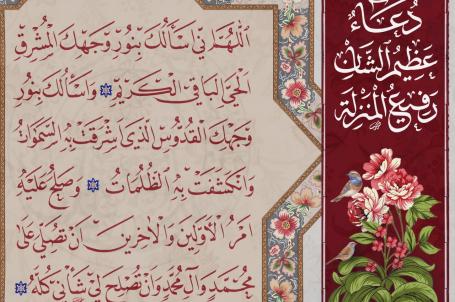 دُعَاءٌ
عَظِيمُ الشَّأنِ
رَفِيعُ المَنزِلَة
اَللّهُمَّ اِنّي اَسْاَلُكَ بِنُورِ وَجْهِكَ الْمُشْرِقِ
الْحَيِّ الْباقِي الْكَرِيمِ وَاَسْاَلُكَ بِنُورِ
وَجْهِكَ الْقُدُّوسِ الَّذي اَشْرَقَتْ بِهِ السَّمٰوَاتُ
وَانْكَشَفَتْ بِهِ الظُّلُمَاتُ وَصَلُحَ عَلَيْهِ
اَمْرُ الْاَوَّلِينَ وَالْاٰخِرِينَ اَنْ تُصَلِّيَ عَلىٰ
مُحَمَّدٍ وَآلِ مُحَمَّدٍ وَاَنْ تُصْلِحَ لِي شَأنِي كُلَّهُ